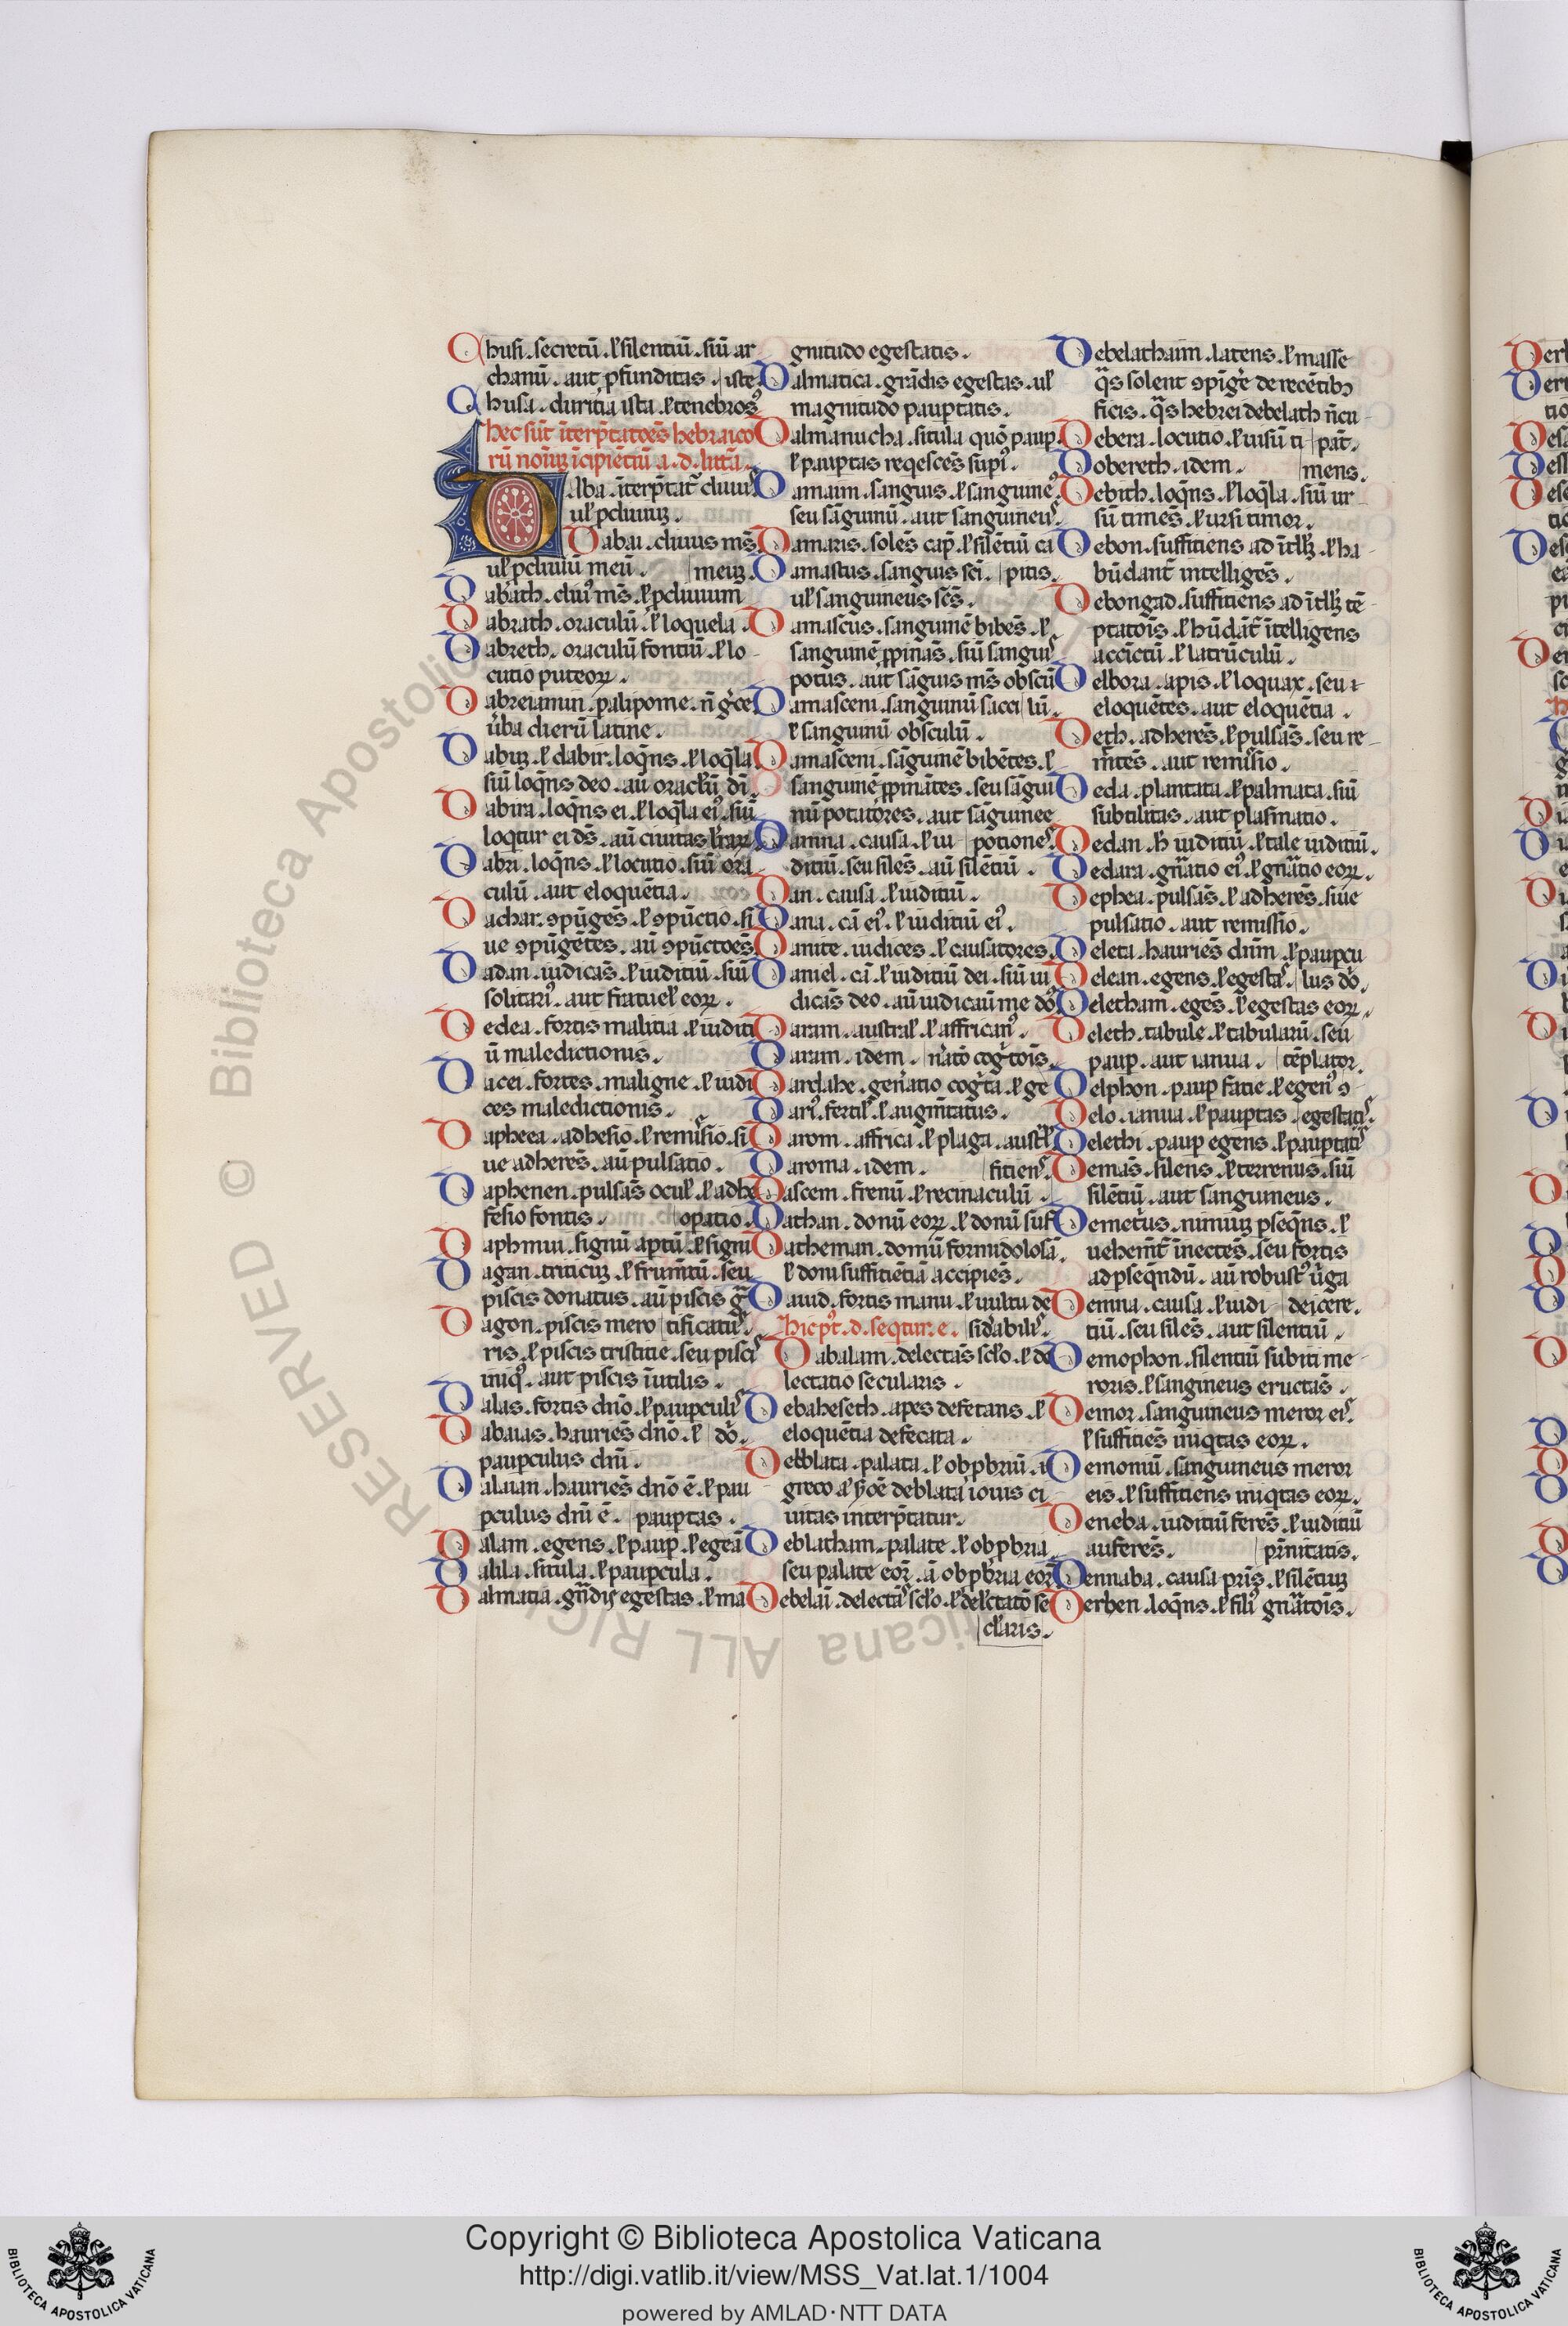 Chusi. secretū. ł silentiū. siū ar
chanū. aut ꝓfunditas. | iste.
Chusa. duritia ista. ł tenebrosꝰ
hec sūt īterp̄tatōēs hebraico
rū noīuꝫ īcipiētiū a. d. lut̄a.
Dalba. īterp̄tat̄ cliuuꝰ
ul̓ pcliuuꝫ.
Dabai. cliuus ms̄.
ul̓ pcliuiū meū. | meuꝫ.
Dabath. cliuꝰ ms̄. ł pcliuuum
Dabrath. oraculū. ł loquela.
Dabreth. oraculū fontiū. ł lo
cutio puteoꝝ.
Dabreiamin. palipome. n̄ gͥce
u̓ba dierū latine.
Dabuꝫ. ł dabir. loqn̄s. ł loqla
siū loqn̄s deo. aū oracl̓ū dī.
Dabira. loqn̄s ei. ł loqla eiꝰ. siū
loqtur ei ds̄. aū ciuitas
Dabri. loqn̄s. ł locutio. siū ora
culū. aut eloquētia.
Dachar. ꝯpūgēs. ł ꝯpūctio. si
ue ꝯpūgētes. aū ꝯpūctoēs
Dadan. iudicās. ł iuditiū. siū
solitariꝰ. aut fratuel̓ eoꝝ.
Dedea. fortis malitia. ł iuditi
ū maledictionis.
Dacei. fortes. maligne. ł iudi
ces maledictionis.
Dapheca. adhesio. ł remissio. si
ue adherēs. aū pulsatio.
Daphenen. pulsās ocul̓. ł adhe
sesio fontis. | opatio.
Daphmui. signū aptū. ł signi
Dagan. triticuꝫ. ł frum̄tū. seu
piscis donatus. aū piscis gᷓ
Dagon. piscis mero | tificatuꝰ.
ris. ł piscis tristitie. seu pisci
iniqꝰ. aut piscis īutilis.
Dalas. fortis dnō. ł paupculꝰ
Dabaias. hauriēs dnō. ł | dō.
paupculus dnī.
Dalaian. hauriēs dnō ē. ł pau
pculus dnī ē. | pauptas.
Dalam. egens. ł paup. ł egeā
Dalila. situla. ł paupcula.
Dalmatia. gn̄dis egestas. ł ma
gnitudo egestatis.
Dalmatica. grādis egestas. ul̓
magnitudo pauptatis.
Dalmanucha. situla quō paup.
ł pauptas reqescēs supͥ.
Damaim. sanguis. ł sanguineꝰ
seu sāguinū. aut sanguineuꝰ.
Damaris. solēs cap̄. ł silētiū ca
Damastus. sanguis scī. | pitis.
ul̓ sanguineus scs̄.
Damascus. sanguinē bibēs. ł
sanguinē ꝓpinās. siū sanguiꝰ
potus. aut sāguis ms̄ obscū
Damasceni. sanguinū sacci | lū.
ł sanguinū obsculū.
Damasceni. sāguinē bibētes. ł
sanguinē ꝓpinātes. seu sāgui
nū potatōres. aut sāguinee
Damna. causa. ł iu | potioneꝰ.
ditiū. seu silēs. aū silētiū.
Dan. causa. ł iuditiū.
Dana. cā eiꝰ. ł iuditiū eiꝰ.
Danite. iudices. ł causatores.
Daniel. cā. ł iuditiū dei. siū iu
dicās deo. aū iudicaū me dō
Daram. austral̓. ł affricanꝰ.
Daram. idem. | n̄atō cogͥtōis.
Dardahe. gen̄atio cogͥta. ł ge
Dariꝰ. fertil̓. ł augm̄tatus.
Darom. affrica. ł plaga. austᷓl̓
Daroma. idem. | sitienꝰ.
Dascem. frenū. ł recinaculū.
Dathan. donū eoꝝ. ł donū suf
Datheman. domū formidolosā.
ł doni sufficiētiā accipiēs.
Dauid. fortis manu. ł uultu de
Hic pꝰt. d. seqtur. e. | sid̄abiliꝰ.
Dabalam. delectās scl̓o. ł de
lectatio secularis.
Debaheseth. apes defetans. ł
eloquētia defecata.
Debblata. palata. ł obpbriū. i
greco deblata iouis ci
uitas interp̄tatur.
Deblatham. palate. ł obpbria
seu palate eoꝝ. ā obpb̄ria eoꝝ
Debelai. delectāꝰ scl̓o. ł delcatō se
cl̓aris.
Debelathaim. latens. ł masse
qᷓs solent ꝯpīgͥe de recētibꝫ
ficis. qᷓs hebrei debelath n̄cu
Debera. locutio. ł uisū ti | pāt.
Dobereth. idem. | mens.
Debith. loqn̄s. ł loqla. siū ur
sū timēs. ł ursi timor.
Debon. sufficiens ad ītl̓lꝫ. ł ha
būdant̄ intelligēs.
Debongad. sufficiens ad ītl̓lꝫ tē
ptatōīs. ł hūdāt̄ ītelligens
accīctū. ł latrūculū.
Delbora. apis. ł loquax. seu ⁊
eloquētes. aut eloquētia.
Deth. adherēs. ł pulsās. seu re
m̄tēs. aut remissio.
Deda. plantata. ł palmata. siū
subtilitas. aut plasmatio.
Dedan. h̄ iuditiū. ł tale iuditiū.
Dedara. gn̄atio eiꝰ. ł gn̄atio eoꝝ.
Dephea. pulsās. ł adherēs. siue
pulsatio. aut remissio.
Deleta. hauriēs dnm̄. ł paupcu
Delean. egens. ł egestaꝰ. | lus dō.
Deletham. egēs. ł egestas eoꝝ.
Deleth. tabule. ł tabularū. seu
paup. aut ianua. | tēplator.
Delphon. paup facie. ł egenꝰ ꝯ
Delo. ianua. ł pauptas. | egestatiꝰ.
Delethi. paup egens. ł pauptatiꝰ
Demas. silens. ł terrenus. siū
silētiū. aut sanguineus.
Demetrius. nimiuꝫ pseqn̄s. ł
uehem̄t̄ īnectēs. seu fortis
ad pseqn̄dū. aū robustꝰ u̓ga
Demna. causa. ł iudi | deicere.
tiū. seu silēs. aut silentiū.
Demophon. silentiū subiti me
roris. ł sangineus eructās.
Demor. sanguineus meror eiꝰ.
ł sufficiēs iniqtas eoꝝ.
Demoniū. sanguineus meror
eis. ł sufficiens iniqtas eoꝝ.
Deneba. iuditiū ferēs. ł iuditiū
auferēs. | pr̄nitatis.
Dennaba. causa pris̄. ł silētiuꝫ
Derben. loqn̄s. ł filiꝰ gn̄atōis.
© Biblioteca Apostolica Vaticana ALL RIGHTS RESERVED
Copyright © Biblioteca Apostolica Vaticana
http://digi.vatlib.it/view/MSS_Vat.lat.1/1004
powered by AMLAD·NTT DATA
BIBLIOTECA APOSTOLICA VATICANA
BIBLIOTECA APOSTOLICA VATICANA